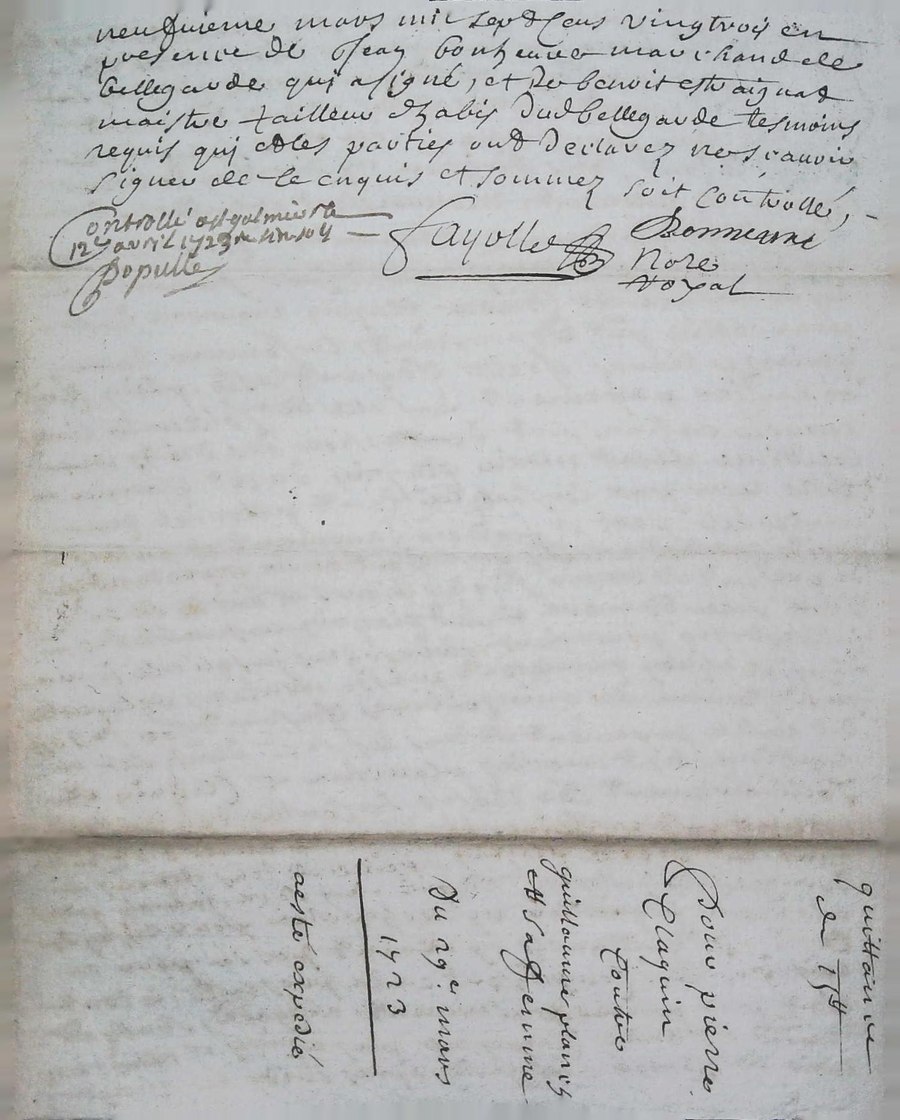 neufvieme mars mil sept Cens vingtrois en
presence de Jean bonheure marchand de
bellegarde qui a signé, et de benoit estaignad
maistre tailleur d'habis dud bellegarde tesmoins
requis qui et les parties ont declarez ne scavoir
signer de ce enquis et sommez soit Controllé,
Controllé a st galmier le
12e avril 1723
Populle
Fayolle
Bonneure
Nore
Royal
quittance
de 15tt
Pour pierre
Claquin
Contre
guillaume planch
et sa femme
Du 29e mars
1723
a esté expedié